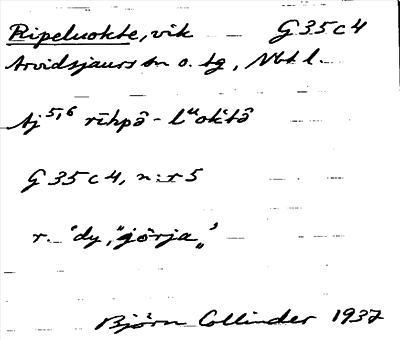 Ripeluokte, vik G 35 c 4
Arvidsjaurs sn o. tg, Nbt l.
Aj 5,6 rīhpȏ - lᵘoktȏ
G 35 c 4, n:r 5
r. 'dy, "görja„'
Björn Collinder 1937